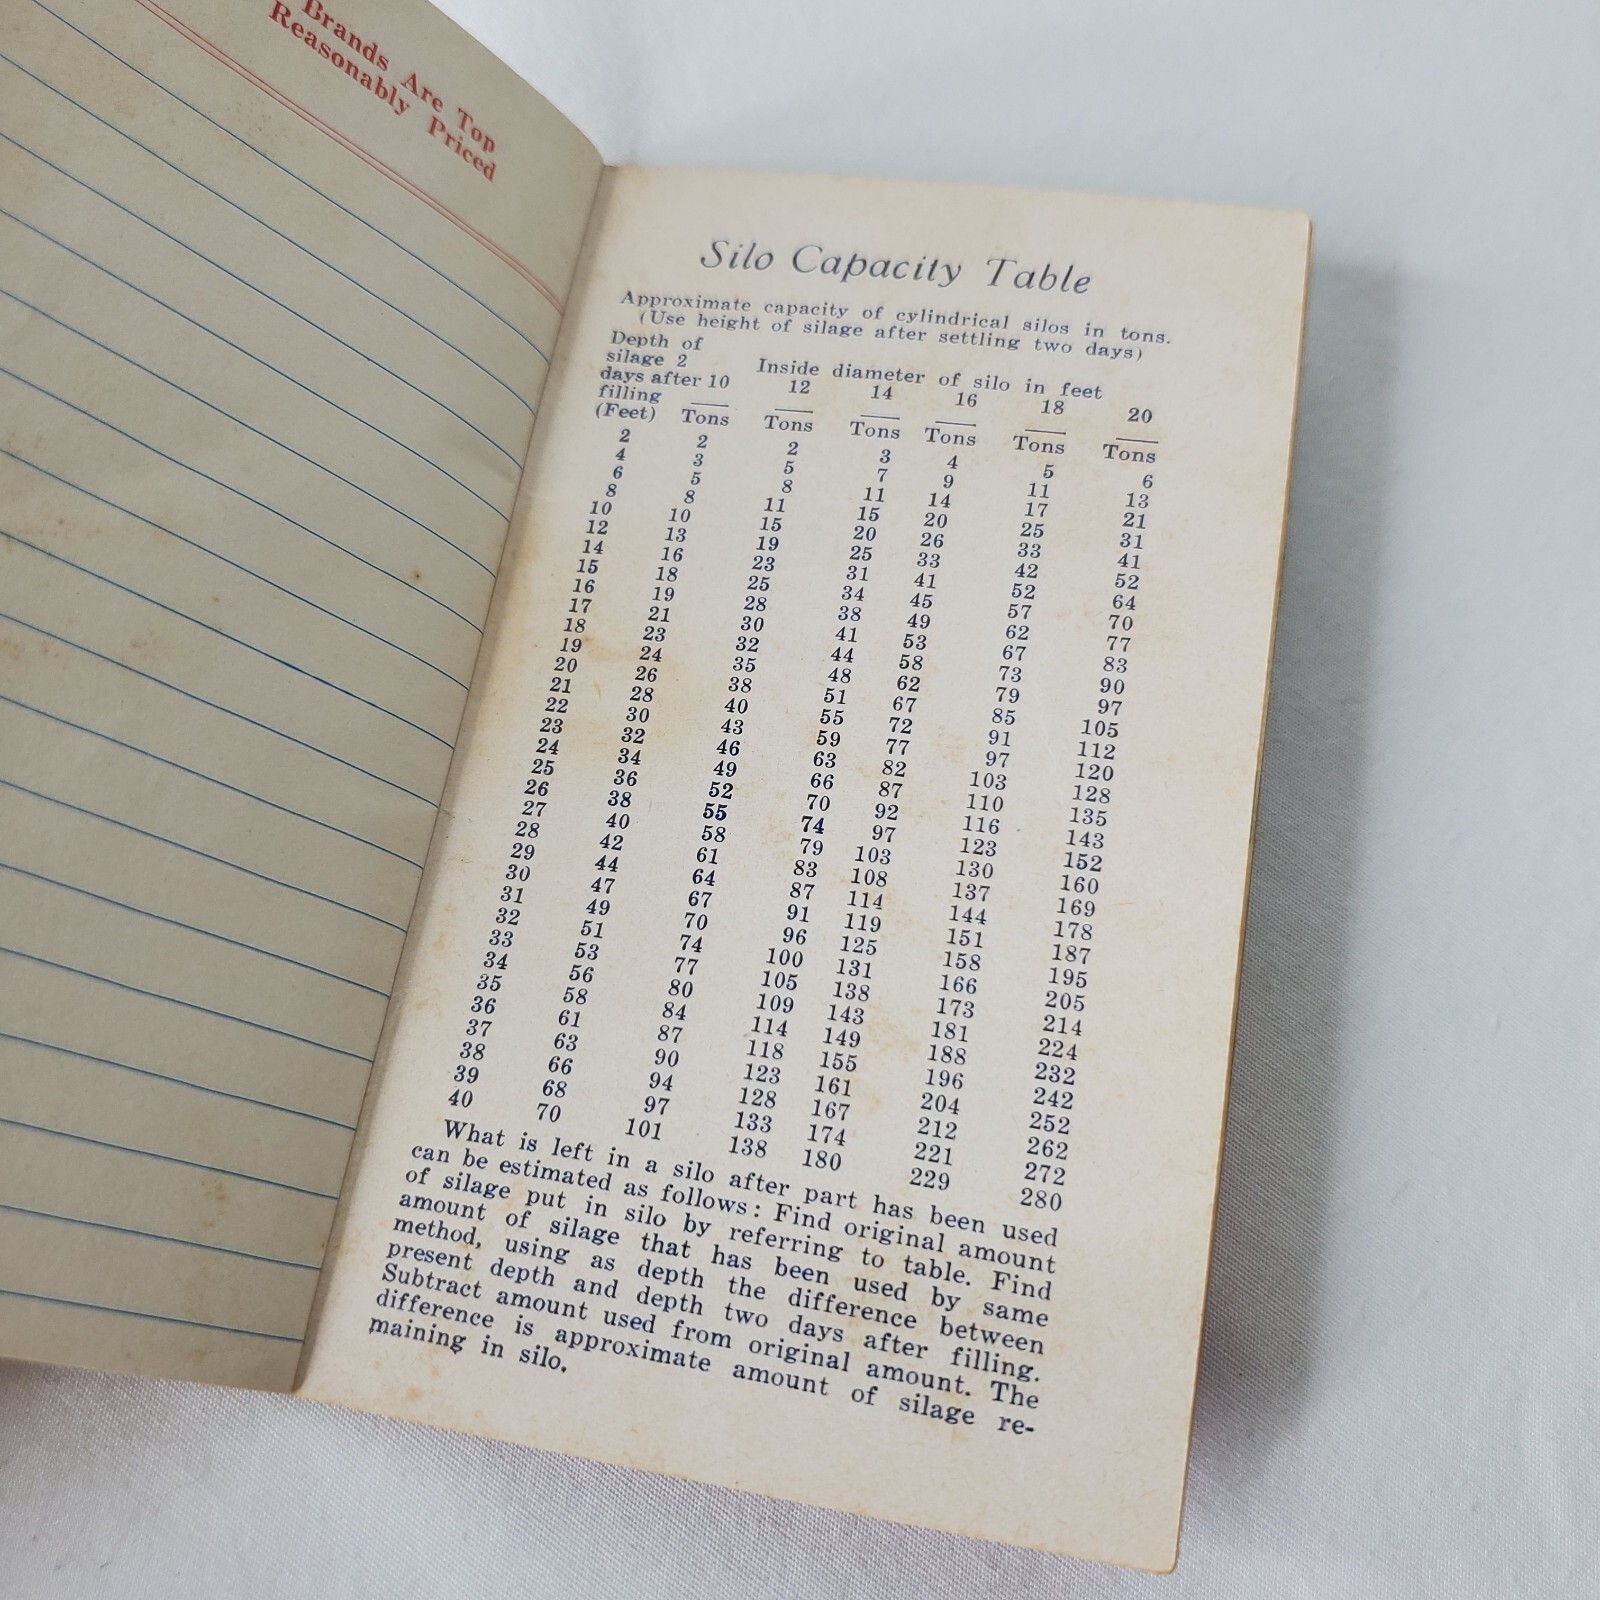 Brands Are Top
Reasonably Priced
Silo Capacity Table
Approximate capacity of cylindrical silos in tons.
(Use height of silage after settling two days)
Depth of
silage 2 Inside diameter of silo in feet
days after 10 12 14 16 18 20
filling
(Feet) Tons Tons Tons Tons Tons Tons
2 2 2 3 4 5 6
4 3 5 7 9 11 13
6 5 8 11 14 17 21
8 8 11 15 20 25 31
10 10 15 20 26 33 41
12 13 19 25 33 42 52
14 16 23 31 41 52 64
15 18 25 34 45 57 70
16 19 28 38 49 62 77
17 21 30 41 53 67 83
18 23 32 44 58 73 90
19 24 35 48 62 79 97
20 26 38 51 67 85 105
21 28 40 55 72 91 112
22 30 43 59 77 97 120
23 32 46 63 82 103 128
24 34 49 66 87 110 135
25 36 52 70 92 116 143
26 38 55 74 97 123 152
27 40 58 79 103 130 160
28 42 61 83 108 137 169
29 44 64 87 114 144 178
30 47 67 91 119 151 187
31 49 70 96 125 158 195
32 51 74 100 131 166 205
33 53 77 105 138 173 214
34 56 80 109 143 181 224
35 58 84 114 149 188 232
36 61 87 118 155 196 242
37 63 90 123 161 204 252
38 66 94 128 167 212 262
39 68 97 133 174 221 272
40 70 101 138 180 229 280
What is left in a silo after part has been used
can be estimated as follows: Find original amount
of silage put in silo by referring to table. Find
amount of silage that has been used by same
method, using as depth the difference between
present depth and depth two days after filling.
Subtract amount used from original amount. The
difference is approximate amount of silage re-
maining in silo.